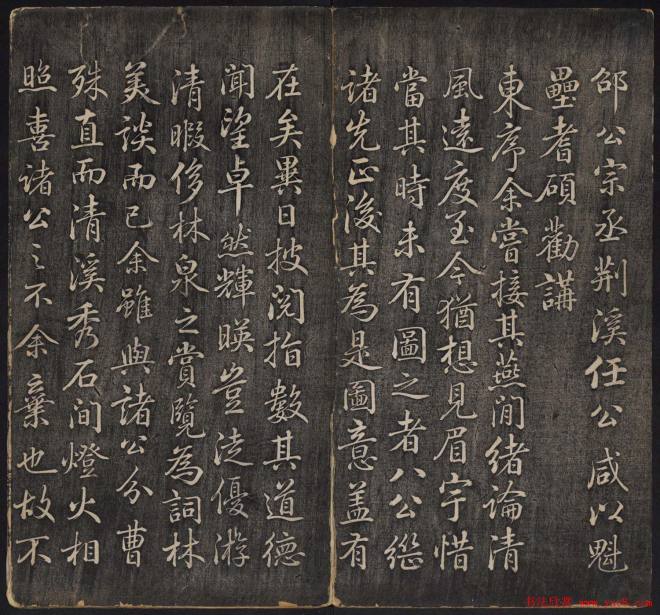 邵公宗丞荆溪任公咸以魁
壘耆碩勸講
東序余嘗接其燕閒緒論清
風遠度至今猶想見眉宇惜
當其時未有圖之者八公繼
諸先正後其為是圖意蓋有
在矣異日披閱指數其道德
聞望卓然輝暎豈徒優游
清暇侈林泉之賞覽為詞林
美談而已余雖與諸公分曹
殊直而清溪秀石間燈火相
照喜諸公之不余棄也故不